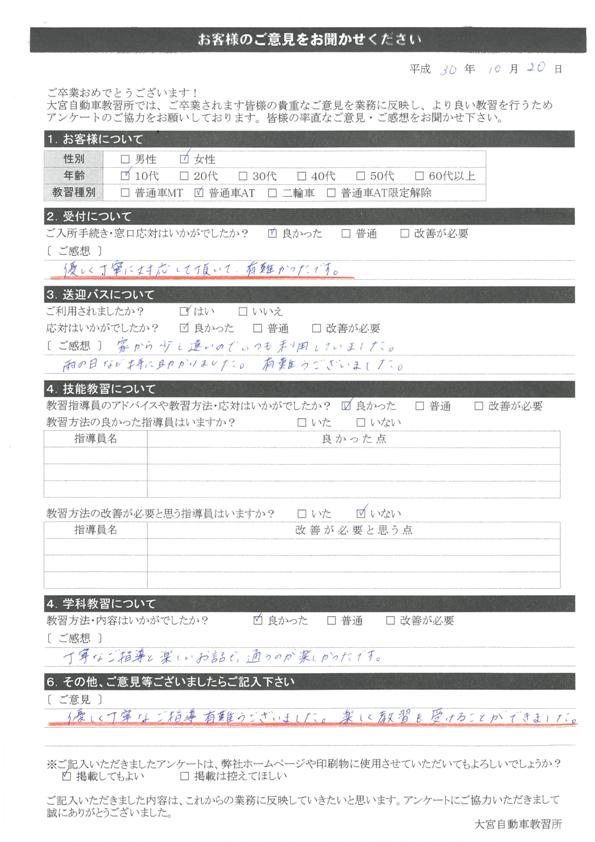 お客様のご意見をお聞かせください
平成 30 年 10 月 20 日
ご卒業おめでとうございます！
大宮自動車教習所では、ご卒業されます皆様の貴重なご意見を業務に反映し、より良い教習を行うため
アンケートのご協力をお願いしております。皆様の率直なご意見・ご感想をお聞かせ下さい。
1. お客様について
性別 □ 男性 ☑ 女性
年齢 ☑ 10代 □ 20代 □ 30代 □ 40代 □ 50代 □ 60代以上
教習種別 □ 普通車MT ☑ 普通車AT □ 二輪車 □ 普通車AT限定解除
2. 受付について
ご入所手続き・窓口応対はいかがでしたか？ ☑ 良かった □ 普通 □ 改善が必要
〔 ご感想 〕
優しく丁寧に対応して頂いて、有難かったです。
3. 送迎バスについて
ご利用されましたか？ ☑ はい □ いいえ
応対はいかがでしたか？ ☑ 良かった □ 普通 □ 改善が必要
〔 ご感想 〕 家から少し遠いのでいつも利用していました。
雨の日など特に助かりました。有難うございました。
4. 技能教習について
教習指導員のアドバイスや教習方法・応対はいかがでしたか？ ☑ 良かった □ 普通 □ 改善が必要
教習方法の良かった指導員はいますか？ □ いた □ いない
指導員名 良かった点
教習方法の改善が必要と思う指導員はいますか？ □ いた ☑ いない
指導員名 改善が必要と思う点
4. 学科教習について
教習方法・内容はいかがでしたか？ ☑ 良かった □ 普通 □ 改善が必要
〔 ご感想 〕
丁寧なご指導と楽しいお話で、通うのが楽しかったです。
6. その他、ご意見等ございましたらご記入下さい
〔 ご意見 〕
優しく丁寧なご指導有難うございました。楽しく教習も受けることができました。
※ご記入いただきましたアンケートは、弊社ホームページや印刷物に使用させていただいてもよろしいでしょうか？
☑ 掲載してもよい □ 掲載は控えてほしい
ご記入いただきました内容は、これからの業務に反映していきたいと思います。アンケートにご協力いただきまして
誠にありがとうございました。
大宮自動車教習所